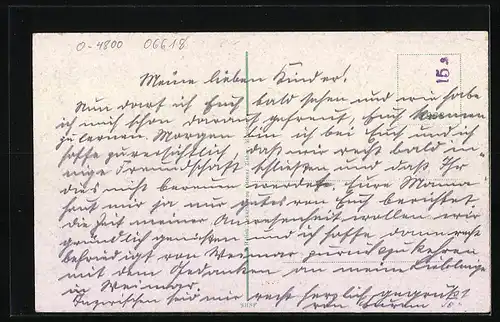 O-4800 06618
15,-
Meine lieben Kinder!
Nun darf ich Euch bald sehen und wie habe
ich mich schon darauf gefreut, Euch kennen
zu lernen. Morgen bin ich bei Euch und ich
hoffe zuversichtlich, daß wir recht bald in-
nige Freundschaft schließen und daß Ihr
das nicht bereuen werdet. Eure Mama
hat mir ja nur gutes von Euch berichtet
die Zeit meiner Anwesenheit wollen wir
gründlich genießen und ich hoffe, dann recht
befriedigt von Weimar zurückzukehren
mit dem Gedanken an meine Lieblinge
in Weimar.
Inzwischen seid mir recht herzlich gegrüßt
von Eurem